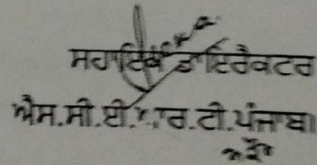 ਸਹਾਇਕ ਡਾਇਰੈਕਟਰ
ਐਸ.ਸੀ.ਈ.ਆਰ.ਟੀ.ਪੰਜਾਬ।